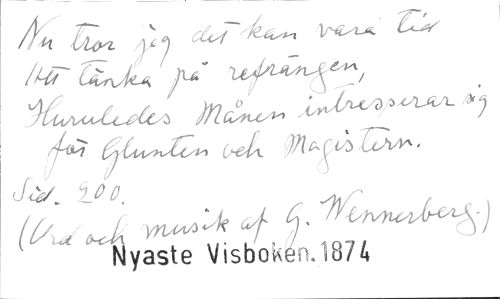 Nu tror jag det kan vara tid
Att tänka på refrängen,
Huruledes Månen intresserar sig
för Glunten och Magistern.
Sid. 200.
(Ord och musik af G. Wennerberg.)
Nyaste Visboken. 1874